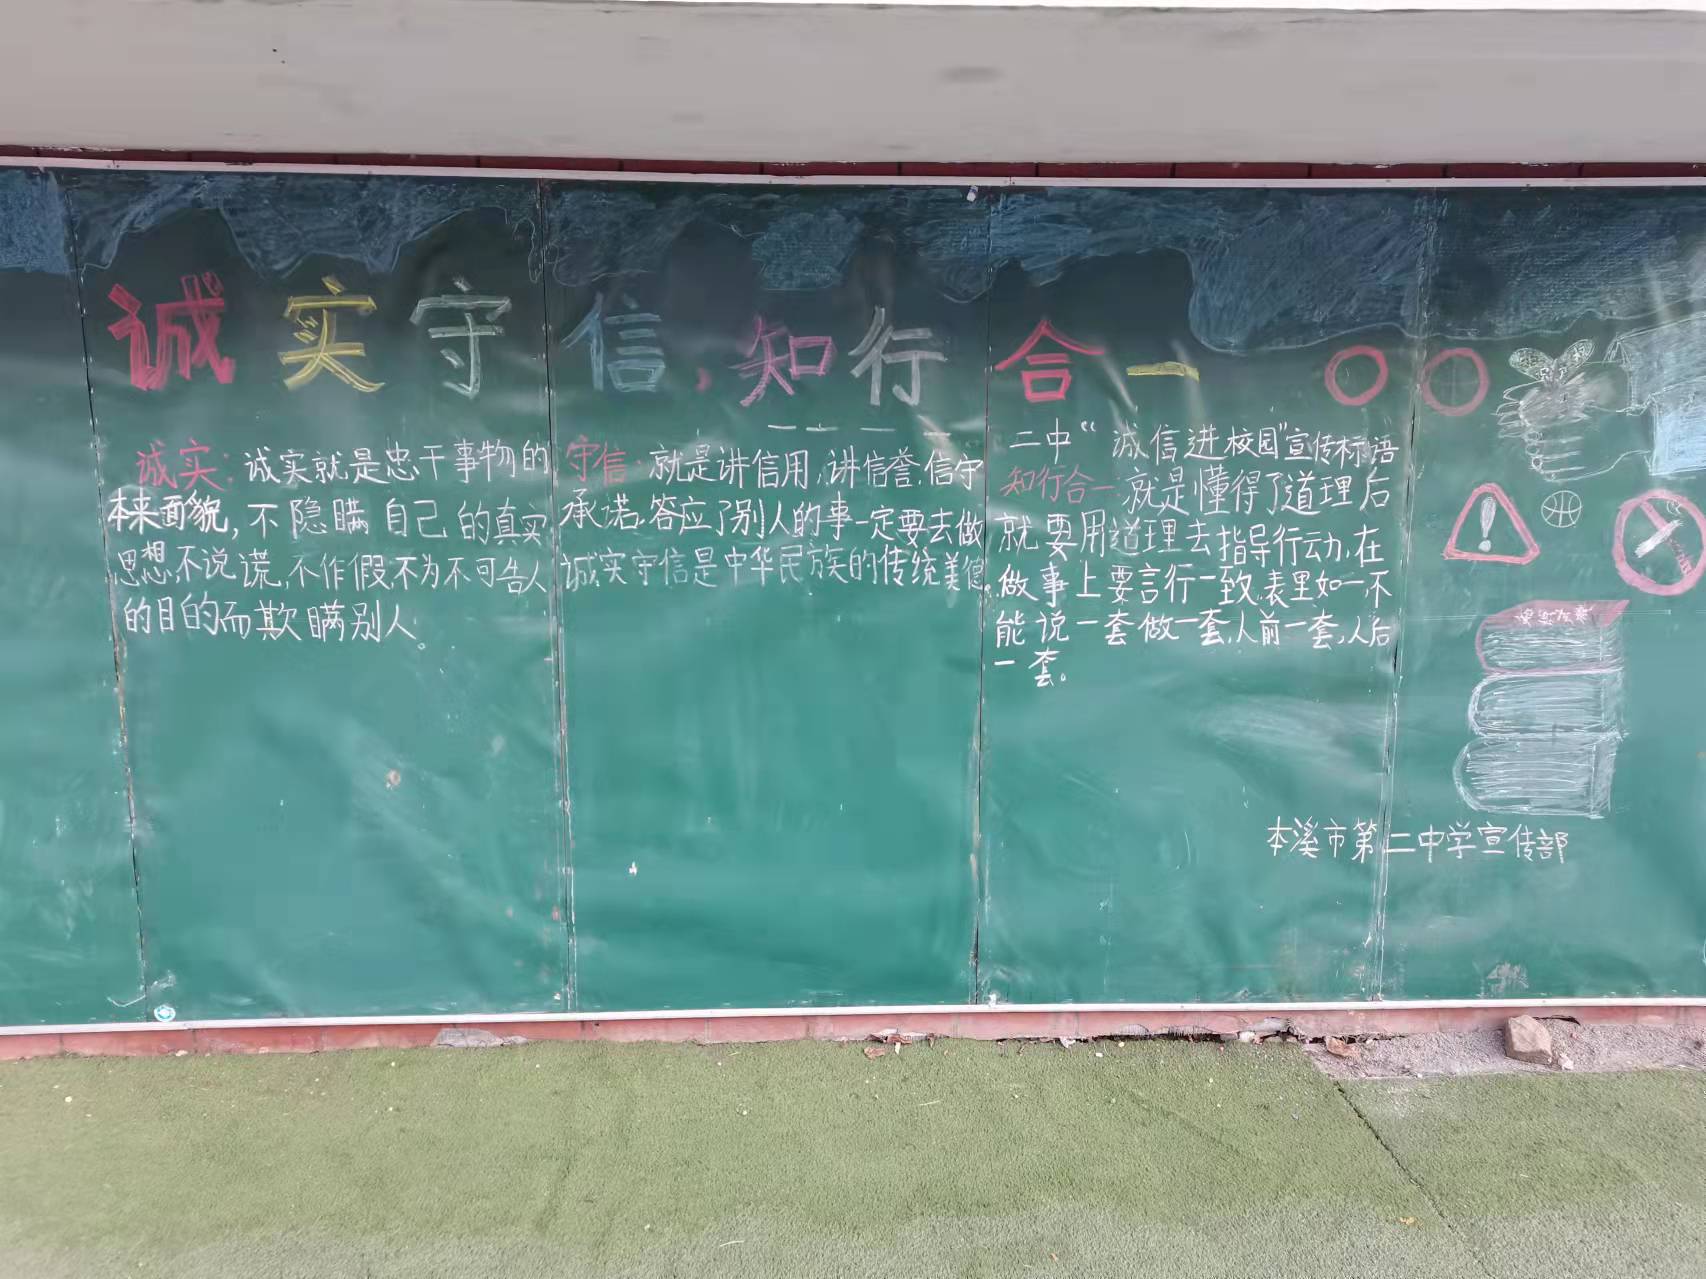 诚实守信，知行合一
——二中“诚信进校园”宣传标语
诚实：诚实就是忠于事物的
本来面貌，不隐瞒自己的真实
思想，不说谎，不作假，不为不可告人
的目的而欺瞒别人。
守信：就是讲信用，讲信誉，信守
承诺，答应了别人的事一定要去做
诚实守信是中华民族的传统美德。
知行合一：就是懂得了道理后
就要用道理去指导行动，在
做事上要言行一致，表里如一，不
能说一套做一套，人前一套，人后
一套。
本溪市第二中学宣传部